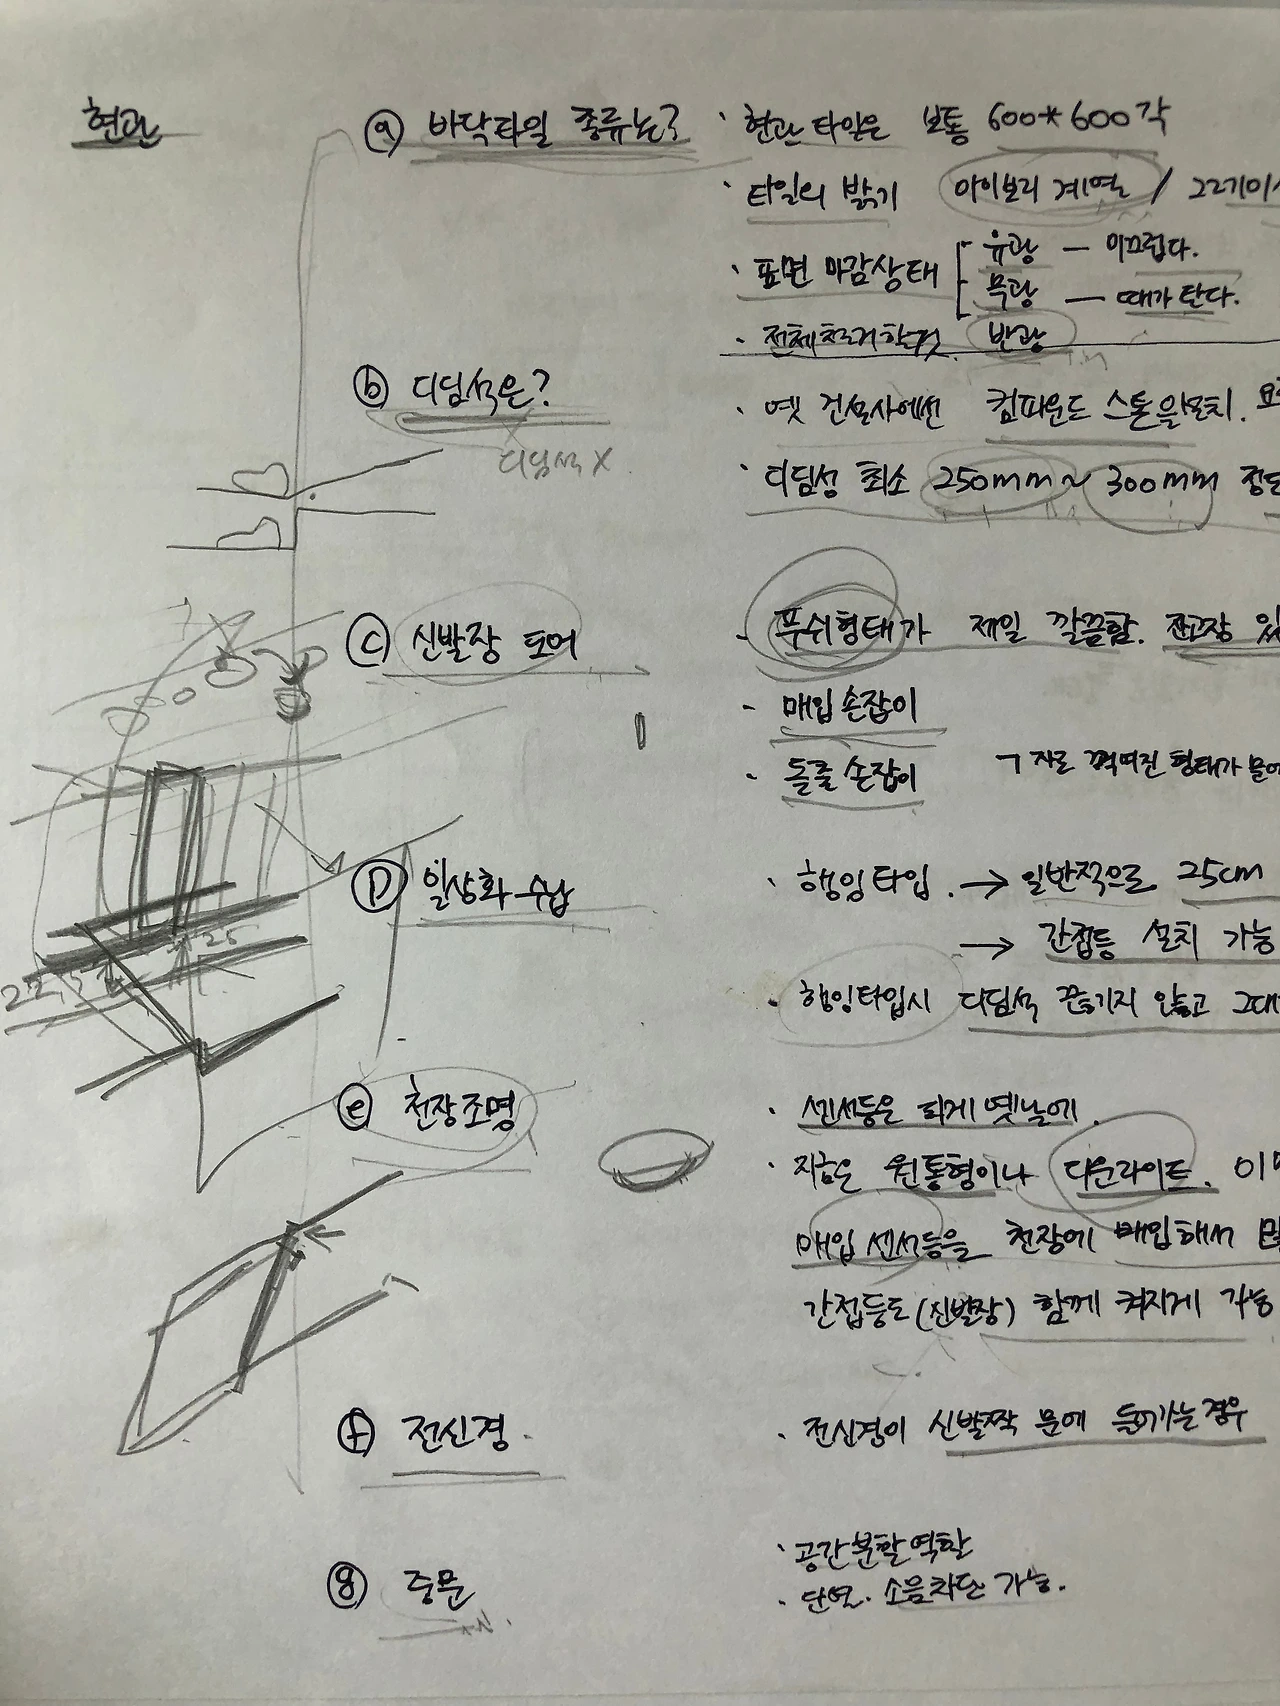 현관
ⓐ 바닥타일 종류는?
· 현관 타일은 보통 600*600각
· 타일의 밝기 아이보리 계열 / 그레이
· 표면 마감상태 유광 — 미끄럽다.
무광 — 때가 탄다.
· 반광
ⓑ 디딤석은?
디딤석 X
· 옛 건설사에선 컴파운드 스톤을 설치.
· 디딤성 최소 250mm ~ 300mm 정도
ⓒ 신발장 도어
- 푸쉬형태가 제일 깔끔함. 잔고장
- 매입 손잡이
· 돌출 손잡이 ㄱ자로 꺽여진 형태가
22.5 25
ⓓ 일상화 수납
· 행잉타입. → 일반적으로 25cm
→ 간접등 설치 가능
· 행잉타입시 디딤석 끊기지 않고 그대
ⓔ 천장조명
· 센서등은 되게 옛날에.
· 지금은 원통형이나 다운라이트.
매입 센서등을 천장에 매입해서
간접등도(신발장) 함께 켜지게 가능
ⓕ 전신경.
· 전신경이 신발짝 문에 들어가는 경우
ⓖ 중문
· 공간분할 역할
· 단열. 소음차단 가능.